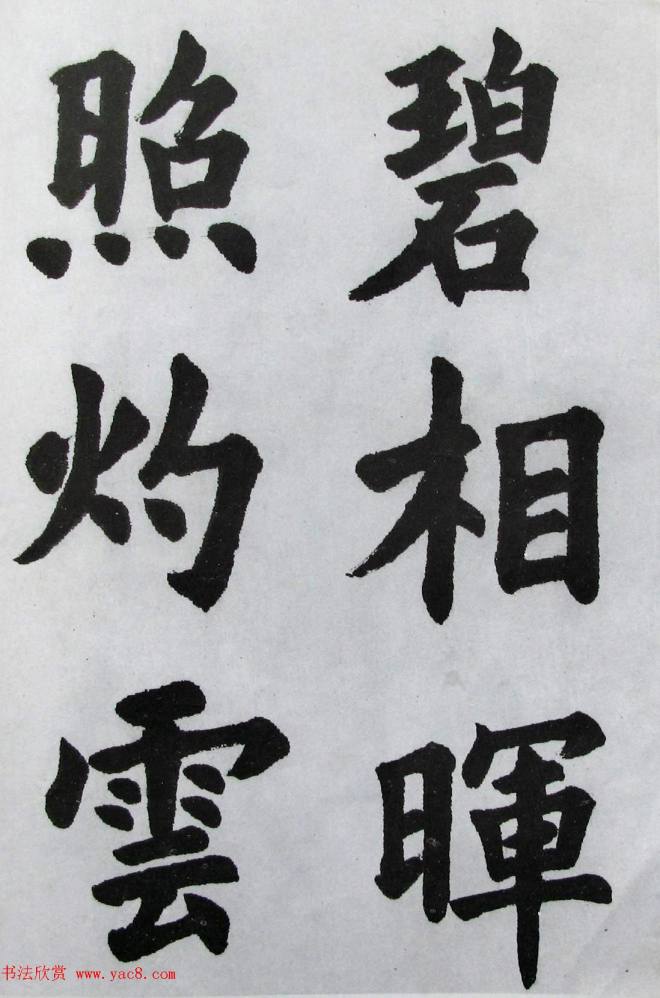 碧相暉
照灼雲
书法欣赏 www.yac8.com